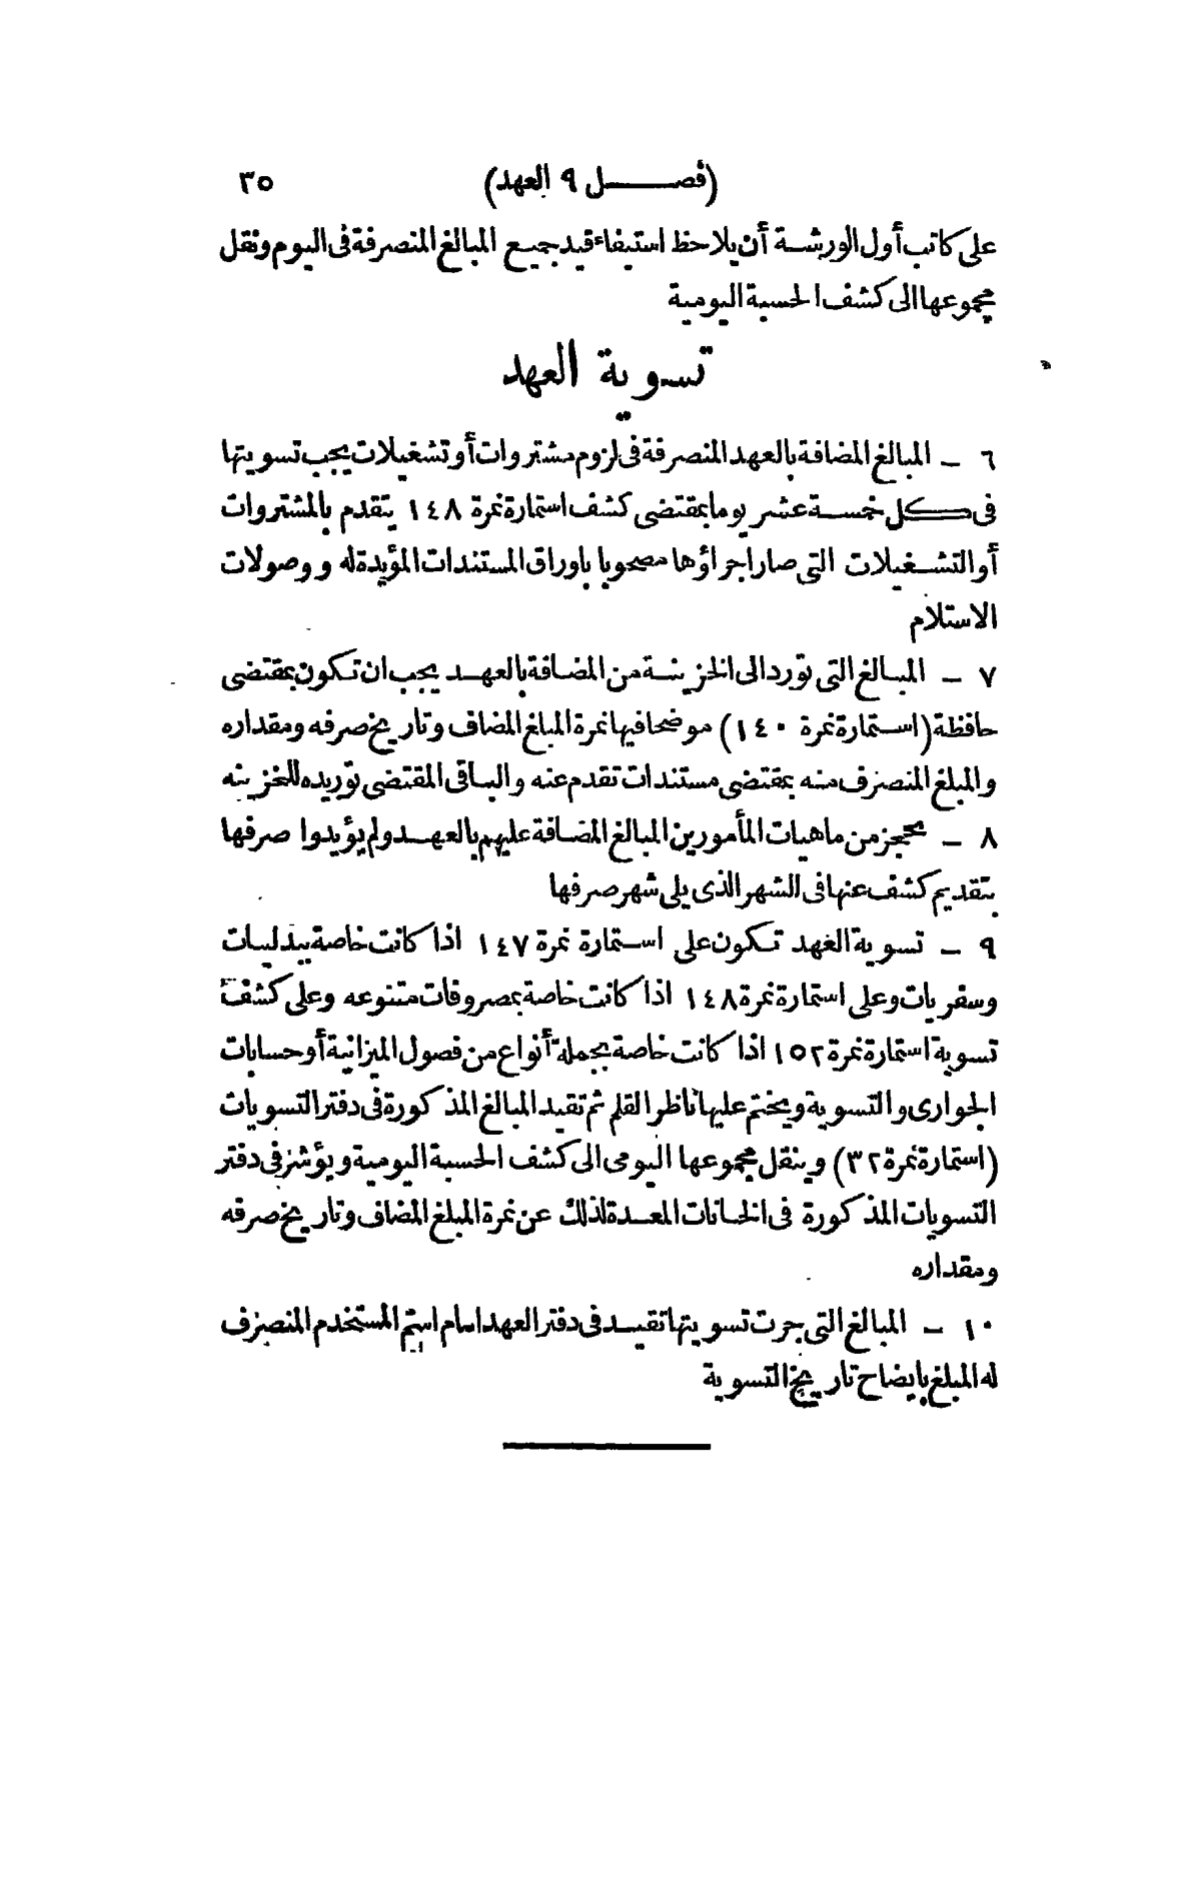 (فصل ٩ العهد) ٣٥
على كاتب أول الورشة أن يلاحظ استيفاء قيد جميع المبالغ المنصرفة فى اليوم ونقل
مجموعها الى كشف الحسبة اليومية
تسوية العهد
٦ - المبالغ المضافة بالعهد المنصرفة فى لزوم مشتروات أو تشغيلات يجب تسويتها
فى كل خمسة عشر يوما بمقتضى كشف استمارة نمرة ١٤٨ يتقدم بالمشتروات
أو التشغيلات التى صار اجراؤها مصحوبا باوراق المستندات المؤيدة له ووصولات
الاستلام
٧ - المبالغ التى تورد الى الخزينة من المضافة بالعهد يجب ان تكون بمقتضى
حافظة (استمارة نمرة ١٤٠) موضحا فيها نمرة المبلغ المضاف وتاريخ صرفه ومقداره
والمبلغ المنصرف منه بمقتضى مستندات تقدم عنه والباقى المقتضى توريده للخزينه
٨ - يحجز من ماهيات المأمورين المبالغ المضافة عليهم بالعهد ولم يؤيدوا صرفها
بتقديم كشف عنها فى الشهر الذى يلى شهر صرفها
٩ - تسوية العهد تكون على استمارة نمرة ١٤٧ اذا كانت خاصة ببدليات
وسفريات وعلى استمارة نمرة ١٤٨ اذا كانت خاصة بمصروفات متنوعه وعلى كشف
تسوية استمارة نمرة ١٥٢ اذا كانت خاصة بجملة أنواع من فصول الميزانية أو حسابات
الجوارى والتسوية ويختم عليها ناظر القلم ثم تقيد المبالغ المذكورة فى دفتر التسويات
(استمارة نمرة ٣٢) وينقل مجموعها اليومى الى كشف الحسبة اليومية ويؤشر فى دفتر
التسويات المذكورة فى الخانات المعدة لذلك عن نمرة المبلغ المضاف وتاريخ صرفه
ومقداره
١٠ - المبالغ التى جرت تسويتها تقيد فى دفتر العهد امام اسم المستخدم المنصرف
له المبلغ بايضاح تاريخ التسوية